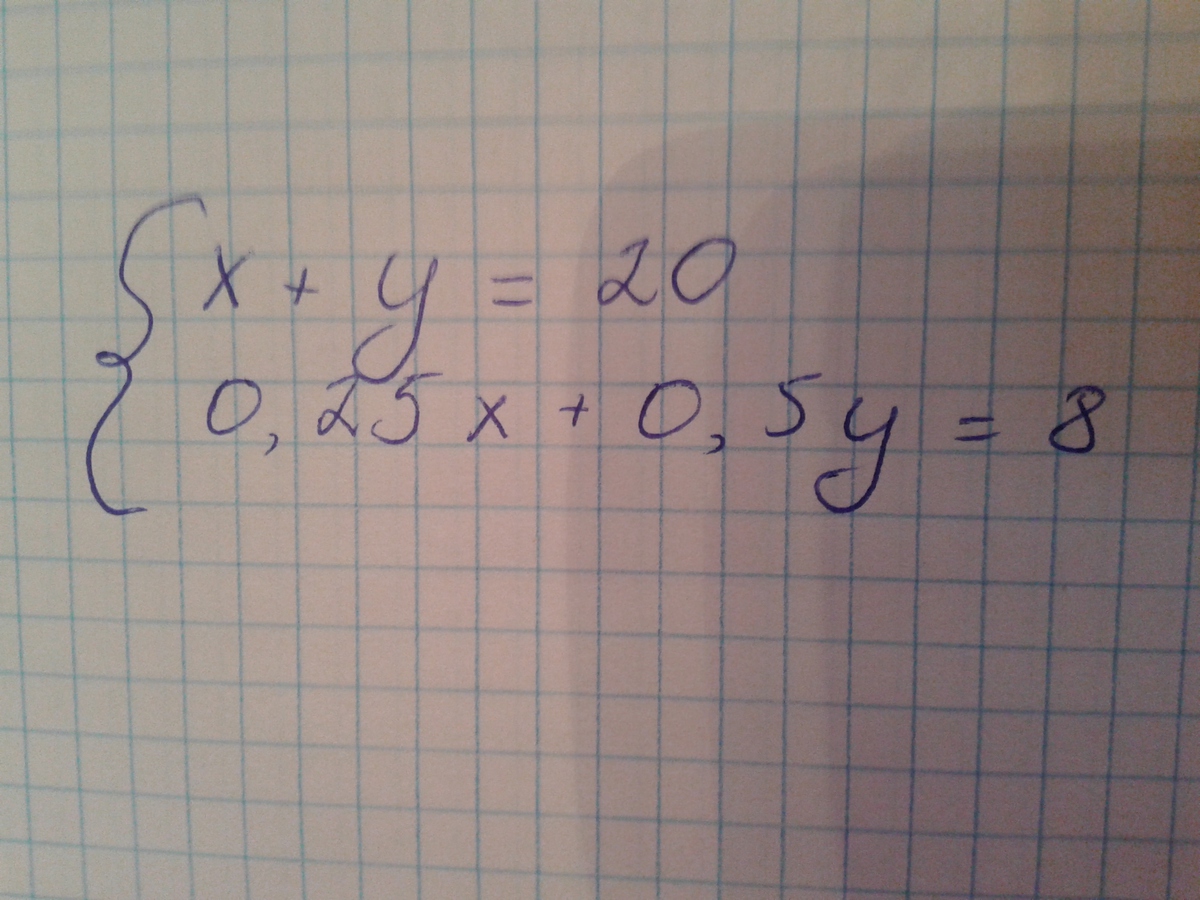 x + y = 20
0,25x + 0,5y = 8